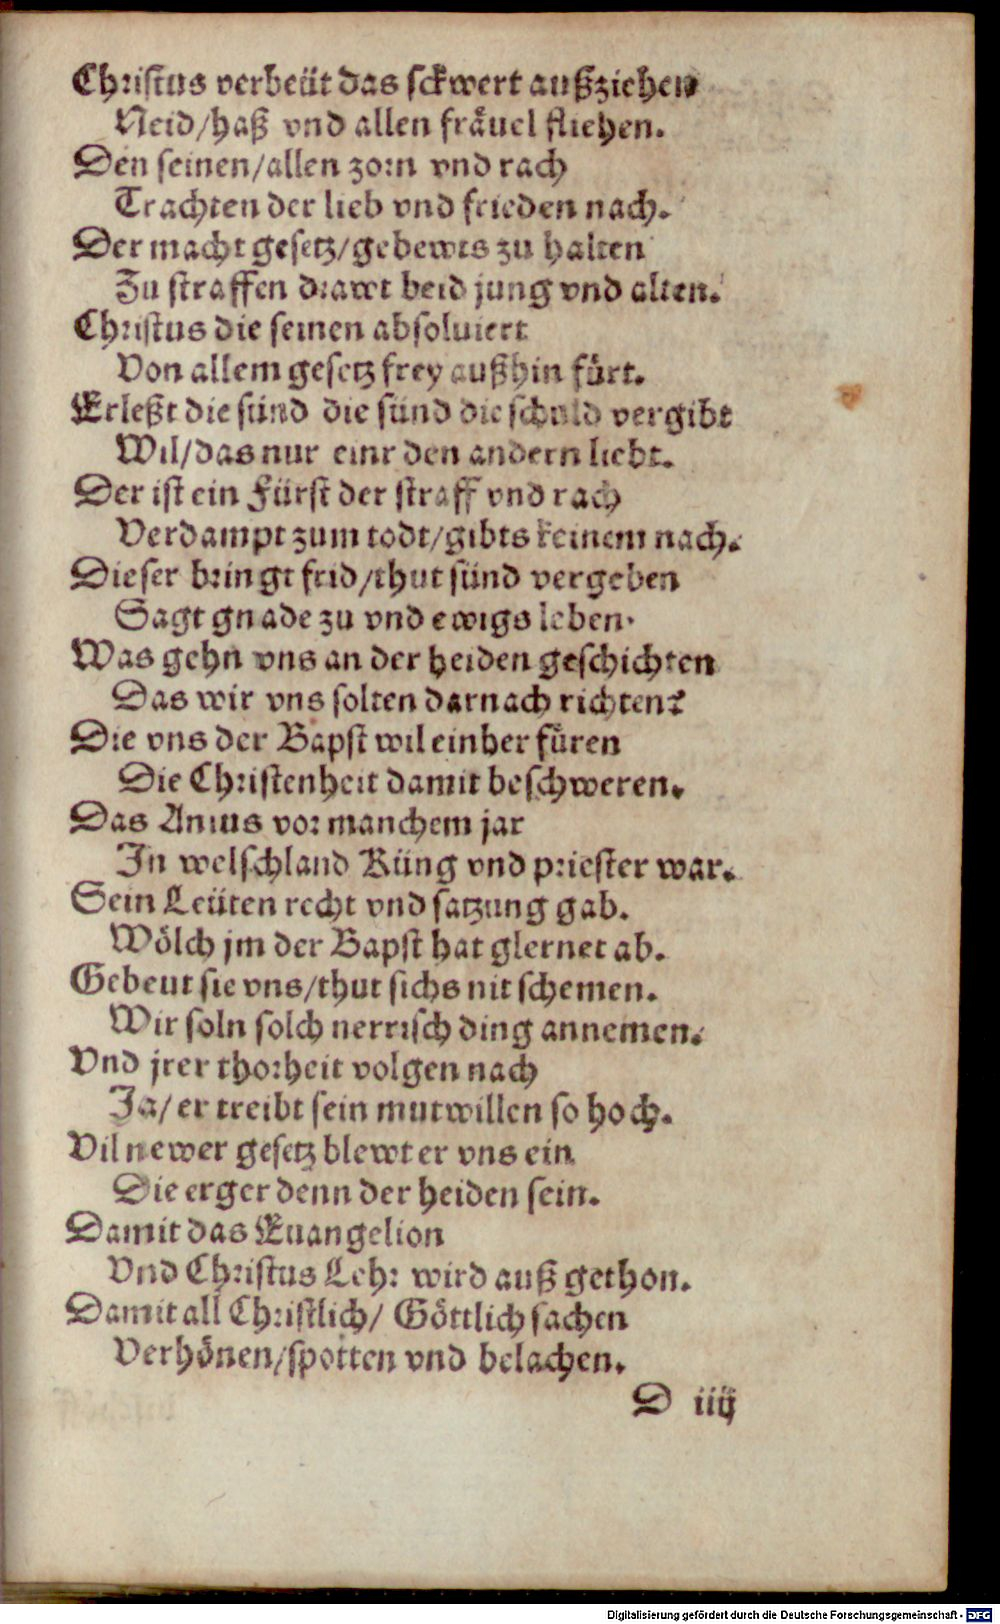 Christus verbeüt das sckwert außziehen
Neid/haß vnd allen fräuel fliehen.
Den seinen/allen zorn vnd rach
Trachten der lieb vnd frieden nach.
Der macht gesetz/gebewts zu halten
Zu straffen drawt beid jung vnd alten.
Christus die seinen absoluiert
Von allem gesetz frey außhin fürt.
Erleßt die sünd die sünd die schuld vergibt
Wil/das nur einr den andern liebt.
Der ist ein Fürst der straff vnd rach
Verdampt zum todt/gibts keinem nach.
Dieser bringt frid/thut sünd vergeben
Sagt gnade zu vnd ewigs leben.
Was gehn vns an der heiden geschichten
Das wir vns solten darnach richten?
Die vns der Bapst wil einher füren
Die Christenheit damit beschweren.
Das Anius vor manchem jar
In welschland Küng vnd priester war.
Sein Leüten recht vnd satzung gab.
Wölch jm der Bapst hat glernet ab.
Gebeut sie vns/thut sichs nit schemen.
Wir soln solch nerrisch ding annemen.
Vnd jrer thorheit volgen nach
Ja/er treibt sein mutwillen so hoch.
Vil newer gesetz blewt er vns ein
Die erger denn der heiden sein.
Damit das Euangelion
Vnd Christus Lehr wird auß gethon.
Damit all Christlich/ Göttlich sachen
Verhönen/spotten vnd belachen.
D iiij
Digitalisierung gefördert durch die Deutsche Forschungsgemeinschaft - DFG